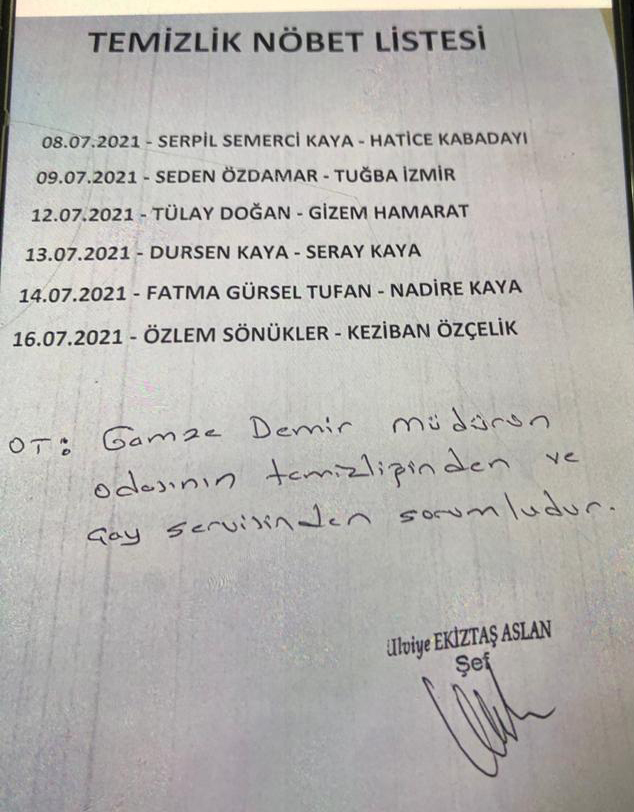 TEMİZLİK NÖBET LİSTESİ
08.07.2021 - SERPİL SEMERCİ KAYA - HATİCE KABADAYI
09.07.2021 - SEDEN ÖZDAMAR - TUĞBA İZMİR
12.07.2021 - TÜLAY DOĞAN - GİZEM HAMARAT
13.07.2021 - DURSEN KAYA - SERAY KAYA
14.07.2021 - FATMA GÜRSEL TUFAN - NADİRE KAYA
16.07.2021 - ÖZLEM SÖNÜKLER - KEZİBAN ÖZÇELİK
OT: Gamze Demir müdürün
odasının temizliğinden ve
çay servisinden sorumludur.
Ulviye EKİZTAŞ ASLAN
Şef